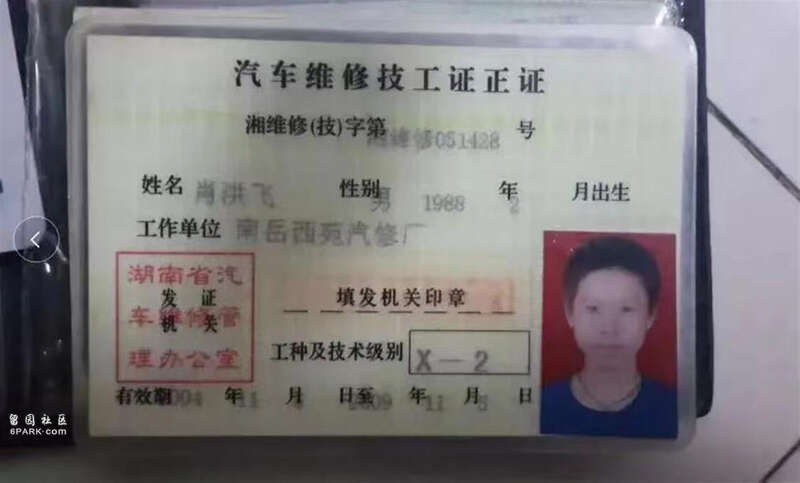 汽车维修技工证正证
湘维修(技)字第 湘维修051428 号
姓名 肖洪飞 性别 男 1988 年 2 月出生
工作单位 南岳西苑汽修厂
湖南省汽
车维修管
理办公室
发证
机关
填发机关印章
工种及技术级别 X-2
有效期 2004 年 11 月 日至 2009 年 11 月 5 日
留园社区
6PARK.com